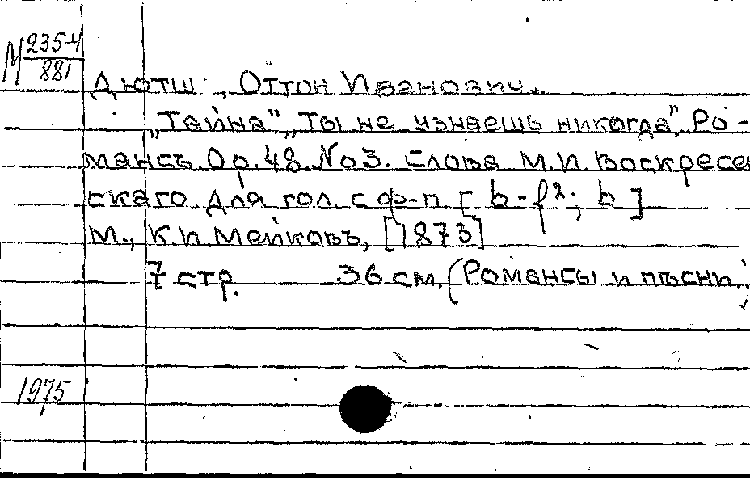 М 235-4
881
Дютш, Оттон Иванович.
„Тайна" „Ты не узнаешь никогда", Ро-
мансъ Op. 48 No 3. Слова М.П. Воскресен
скаго для гол. с ф-п. [b-f²; b]
М., К.П. Мейковъ, [1873]
7 стр. 36 см. (Романсы и пѣсни
1975